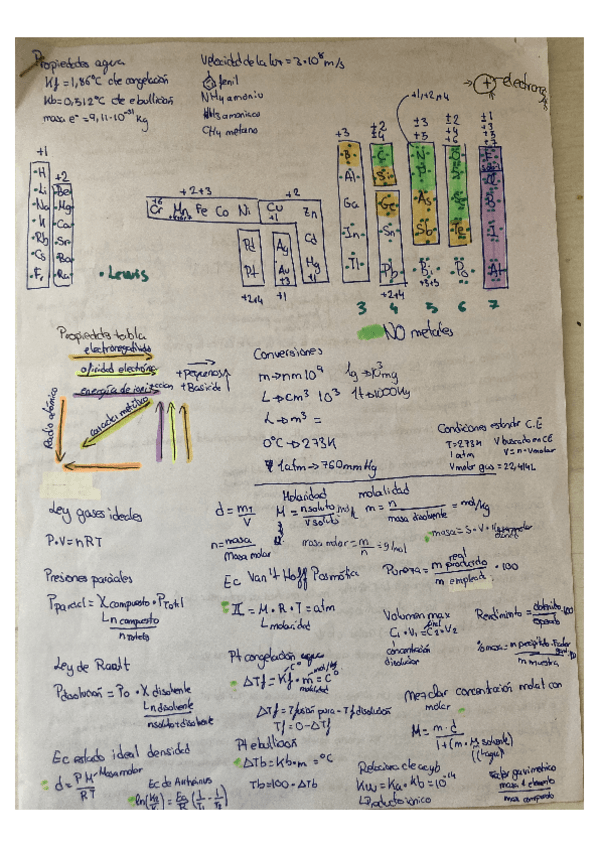 Propiedades agua
Kf = 1,86°C de congelación
Kb = 0,512°C de ebullición
masa e⁻ = 9,11·10⁻³¹ Kg
Velocidad de la luz = 3·10⁸ m/s
fenil
NH4 amonio
NH3 amoniaco
CH4 metano
+1, +2, +4
+1
+2
·H
·Li ·Be·
·Na ·Mg·
·K ·Ca·
·Rb ·Sr·
·Cs ·Ba·
·Fr ·Ra·
·Lewis
+2 +3
+2
Cr Mn Fe Co Ni Cu Zn
Pd Ag Cd
Pt Au Hg
+3 +1
+2+4 +1
+3 ±2 ±4 ±3 +5 ±2 +4 +6 ±1 +3 +5 +7
B C N O F
Al Si P
Ga Ge As
In Sn Sb Te I
Tl Pb Bi Po At
+2+4 +3+5
3 4 5 6 7
NO metales
Propiedades tabla
electronegatividad
afinidad electrónica
energía de ionización
+pequeños
+Basicide
Radio atómico
caracter metálico
Conversiones
m → nm 10⁹ 1g → 10³mg
L → cm³ 10³ 1t → 1000Kg
L → m³ =
0°C → 273K
1atm → 760mmHg
Condiciones estándar C.E
T = 273K V buscado en CE
1 atm V = n · Vmolar
Vmolar gas = 22,4 L
Ley gases ideales
P·V = nRT
d = m/V
Molaridad
M = n soluto/V soluto
molalidad
m = n/masa disolvente = mol/Kg
n = masa/masa molar
masa molar = m/n = g/mol
Presiones parciales
Pparcial = X compuesto · Ptotal
n compuesto/n totales
Ec Van't Hoff P osmótica
π = M · R · T = atm
molaridad
Pureza = m real producido/m emplead · 100
Volumen max
C1 · V1 = C2 · V2
concentración
disolución
Rendimiento = obtenido/esperado · 100
Ley de Raoult
Pdisolución = P₀ · X disolvente
n disolvente/n soluto+disolvente
Pt congelación agua
ΔTf = Kf · m = C°
molalidad
ΔTf = Tfusión pura - Tf disolución
Tf = 0 - ΔTf
Mezclar concentración molal con molar
M = m·d/1+(m · Ms soluto)
Ec estado ideal densidad
d = P M/RT Masa molar
Ec de Arrhenius
ln(K2/K1) = Ea/R (1/T1 - 1/T2)
Pt ebullición
ΔTb = Kb · m = °C
Tb = 100 · ΔTb
Kw = Ka · Kb = 10⁻¹⁴
Producto iónico
Factor gravimétrico
masa elemento/masa compuesto